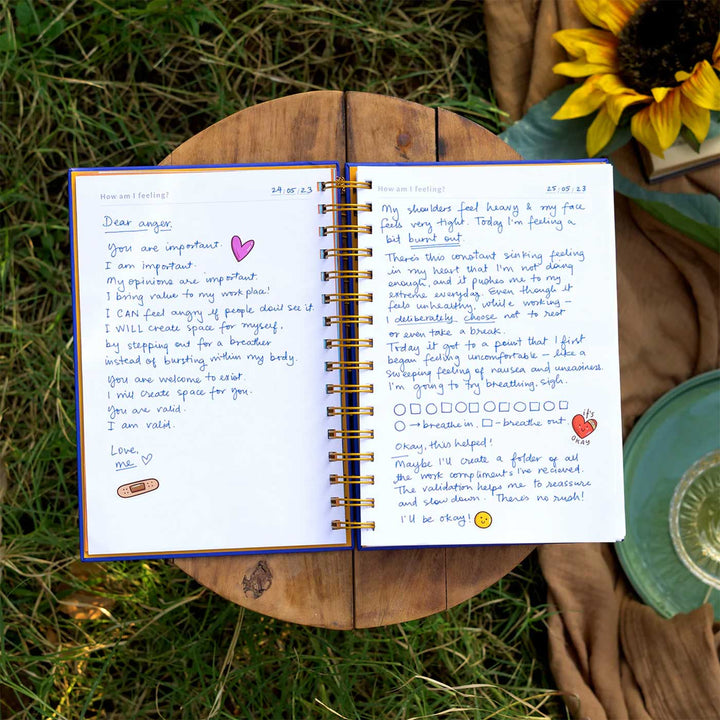 How am I feeling?
24.05.23
Dear anger,
You are important.
I am important.
My opinions are important.
I bring value to my work place!
I CAN feel angry if people don't see it.
I WILL create space for myself,
by stepping out for a breather
instead of bursting within my body.
You are welcome to exist.
I will create space for you.
You are valid.
I am valid.
Love,
me
How am I feeling?
25.05.23
My shoulders feel heavy & my face
feels very tight. Today I'm feeling a
bit burnt out.
There's this constant sinking feeling
in my heart that I'm not doing
enough, and it pushes me to my
extreme everyday. Even though it
feels unhealthy, while working –
I deliberately choose not to rest
or even take a break.
Today it got to a point that I first
began feeling uncomfortable – like a
sweeping feeling of nausea and uneasiness.
I'm going to try breathing, sigh.
→ breathe in, - breathe out
it's
OKAY
Okay, this helped!
Maybe I'll create a folder of all
the work compliments I've recieved.
The validation helps me to reassure
and slow down. There's no rush!
I'll be okay!